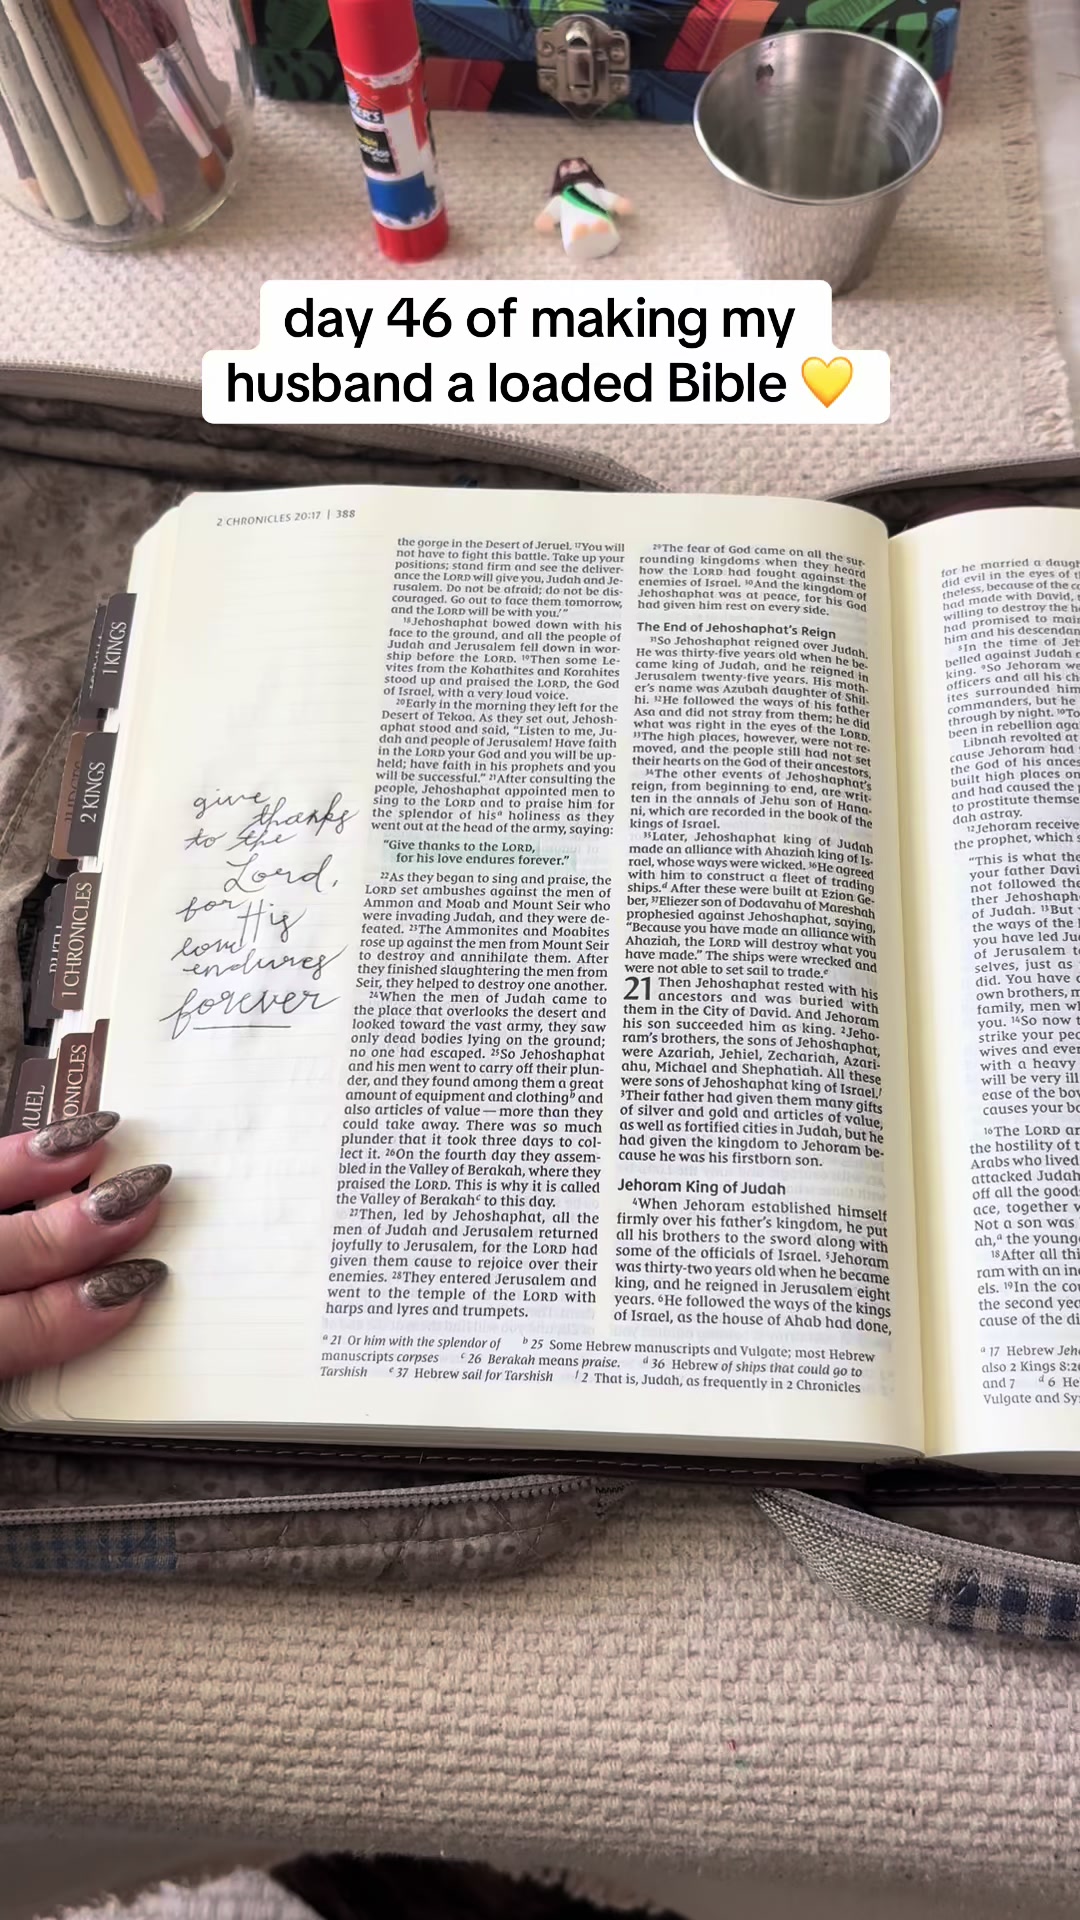 day 46 of making my
husband a loaded Bible 💛
2 CHRONICLES 20:17 | 388
the gorge in the Desert of Jeruel. 17You will
not have to fight this battle. Take up your
positions; stand firm and see the deliver-
ance the LORD will give you, Judah and Je-
rusalem. Do not be afraid; do not be dis-
couraged. Go out to face them tomorrow,
and the LORD will be with you.'"
18Jehoshaphat bowed down with his
face to the ground, and all the people of
Judah and Jerusalem fell down in wor-
ship before the LORD. 19Then some Le-
vites from the Kohathites and Korahites
stood up and praised the LORD, the God
of Israel, with a very loud voice.
20Early in the morning they left for the
Desert of Tekoa. As they set out, Jehosh-
aphat stood and said, "Listen to me, Ju-
dah and people of Jerusalem! Have faith
in the LORD your God and you will be up-
held; have faith in his prophets and you
will be successful." 21After consulting the
people, Jehoshaphat appointed men to
sing to the LORD and to praise him for
the splendor of hisa holiness as they
went out at the head of the army, saying:
"Give thanks to the LORD,
for his love endures forever."
22As they began to sing and praise, the
LORD set ambushes against the men of
Ammon and Moab and Mount Seir who
were invading Judah, and they were de-
feated. 23The Ammonites and Moabites
rose up against the men from Mount Seir
to destroy and annihilate them. After
they finished slaughtering the men from
Seir, they helped to destroy one another.
24When the men of Judah came to
the place that overlooks the desert and
looked toward the vast army, they saw
only dead bodies lying on the ground;
no one had escaped. 25So Jehoshaphat
and his men went to carry off their plun-
der, and they found among them a great
amount of equipment and clothingb and
also articles of value — more than they
could take away. There was so much
plunder that it took three days to col-
lect it. 26On the fourth day they assem-
bled in the Valley of Berakah, where they
praised the LORD. This is why it is called
the Valley of Berakahc to this day.
27Then, led by Jehoshaphat, all the
men of Judah and Jerusalem returned
joyfully to Jerusalem, for the LORD had
given them cause to rejoice over their
enemies. 28They entered Jerusalem and
went to the temple of the LORD with
harps and lyres and trumpets.
29The fear of God came on all the sur-
rounding kingdoms when they heard
how the LORD had fought against the
enemies of Israel. 30And the kingdom of
Jehoshaphat was at peace, for his God
had given him rest on every side.
The End of Jehoshaphat's Reign
31So Jehoshaphat reigned over Judah.
He was thirty-five years old when he be-
came king of Judah, and he reigned in
Jerusalem twenty-five years. His moth-
er's name was Azubah daughter of Shil-
hi. 32He followed the ways of his father
Asa and did not stray from them; he did
what was right in the eyes of the LORD.
33The high places, however, were not re-
moved, and the people still had not set
their hearts on the God of their ancestors.
34The other events of Jehoshaphat's
reign, from beginning to end, are writ-
ten in the annals of Jehu son of Hana-
ni, which are recorded in the book of the
kings of Israel.
35Later, Jehoshaphat king of Judah
made an alliance with Ahaziah king of Is-
rael, whose ways were wicked. 36He agreed
with him to construct a fleet of trading
ships.d After these were built at Ezion Ge-
ber, 37Eliezer son of Dodavahu of Mareshah
prophesied against Jehoshaphat, saying,
"Because you have made an alliance with
Ahaziah, the LORD will destroy what you
have made." The ships were wrecked and
were not able to set sail to trade.e
21 Then Jehoshaphat rested with his
ancestors and was buried with
them in the City of David. And Jehoram
his son succeeded him as king. 2Jeho-
ram's brothers, the sons of Jehoshaphat,
were Azariah, Jehiel, Zechariah, Azari-
ahu, Michael and Shephatiah. All these
were sons of Jehoshaphat king of Israel.f
3Their father had given them many gifts
of silver and gold and articles of value,
as well as fortified cities in Judah, but he
had given the kingdom to Jehoram be-
cause he was his firstborn son.
Jehoram King of Judah
4When Jehoram established himself
firmly over his father's kingdom, he put
all his brothers to the sword along with
some of the officials of Israel. 5Jehoram
was thirty-two years old when he became
king, and he reigned in Jerusalem eight
years. 6He followed the ways of the kings
of Israel, as the house of Ahab had done,
a 21 Or him with the splendor of b 25 Some Hebrew manuscripts and Vulgate; most Hebrew
manuscripts corpses c 26 Berakah means praise. d 36 Hebrew of ships that could go to
Tarshish e 37 Hebrew sail for Tarshish f 2 That is, Judah, as frequently in 2 Chronicles
give
thanks
to the
Lord,
for His
love
endures
forever
1 KINGS
2 KINGS
1 CHRONICLES
ONICLES
MUEL
for he married a daugh
did evil in the eyes of t
theless, because of the c
had made with David,
willing to destroy the h
had promised to main
him and his descendan
8In the time of Jeh
belled against Judah
king. 9So Jehoram we
officers and all his ch
ites surrounded him
commanders, but he
through by night. 10To
been in rebellion aga
Libnah revolted at
cause Jehoram had
the God of his ances
built high places on
and had caused the p
to prostitute themse
dah astray.
12Jehoram receive
the prophet, which s
"This is what the
your father Davi
not followed the
ther Jehoshaph
of Judah. 13But
the ways of the
you have led Ju
of Jerusalem to
selves, just as
did. You have
own brothers, m
family, men w
you. 14So now t
strike your peo
wives and ever
with a heavy
will be very ill
ease of the bow
causes your bo
16The LORD ar
the hostility of t
Arabs who lived
attacked Judah
off all the good
ace, together w
Not a son was
ah,a the young
18After all thi
ram with an in
els. 19In the cou
the second yea
cause of the di
a 17 Hebrew Jeh
also 2 Kings 8:2
and 7 d 6 He
Vulgate and Sy